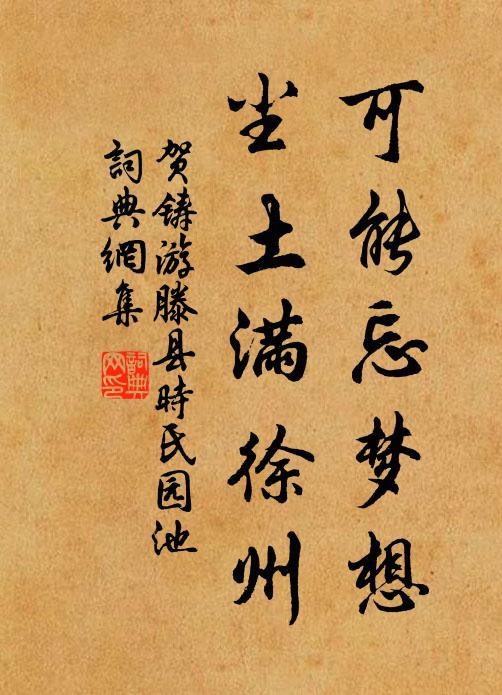 可能忘梦想
尘土满徐州
贺铸游滕县時氏园池
詞典網集
詞典网印